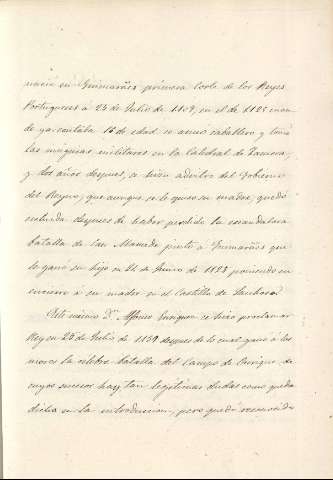 nació en Guimarães primera Corte de los Reyes
Portugueses á 25 de Julio de 1109, en el de 1125 cuan-
do ya contaba 16 de edad se armó caballero y tomó
las insignias militares en la Catedral de Zamora,
y dos años despues, se hizo adentro del Gobierno
del Reyno; que aunque se lo quiso su madre, quedó
escluida despues de haber perdido la
batalla de San Mamede junto á Guimarães que
le ganó su hijo en 24 de Junio de 1128 poniendo en
encierro á su madre en el Castillo de
Este mismo Dn. Alfonso Enriquez se hizo proclamar
Rey en 25 de Julio de 1139 despues de lo cual ganó á los
moros la celebre batalla del Campo de Ourique, de
cuyos sucesos hay tan legitimas dudas como queda
dicho en la introduccion, pero quedó reconocido